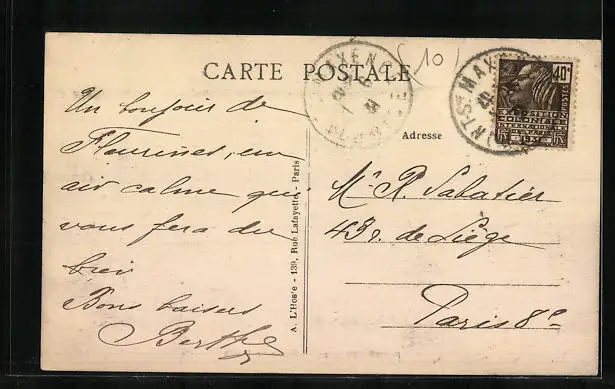 CARTE POSTALE
(10)
40c
POSTES
EXPOSITION
COLONIALE
INTERNATIONALE
PARIS 1931
RF
Adresse
Un bonjour de
Fleurines, un
air calme qui
vous fera du
bien
Bons baisers
Berthe
A. L'Hoste - 139, Rue Lafayette - Paris
Mr R. Sabatier
43 r. de Liège
Paris 8e